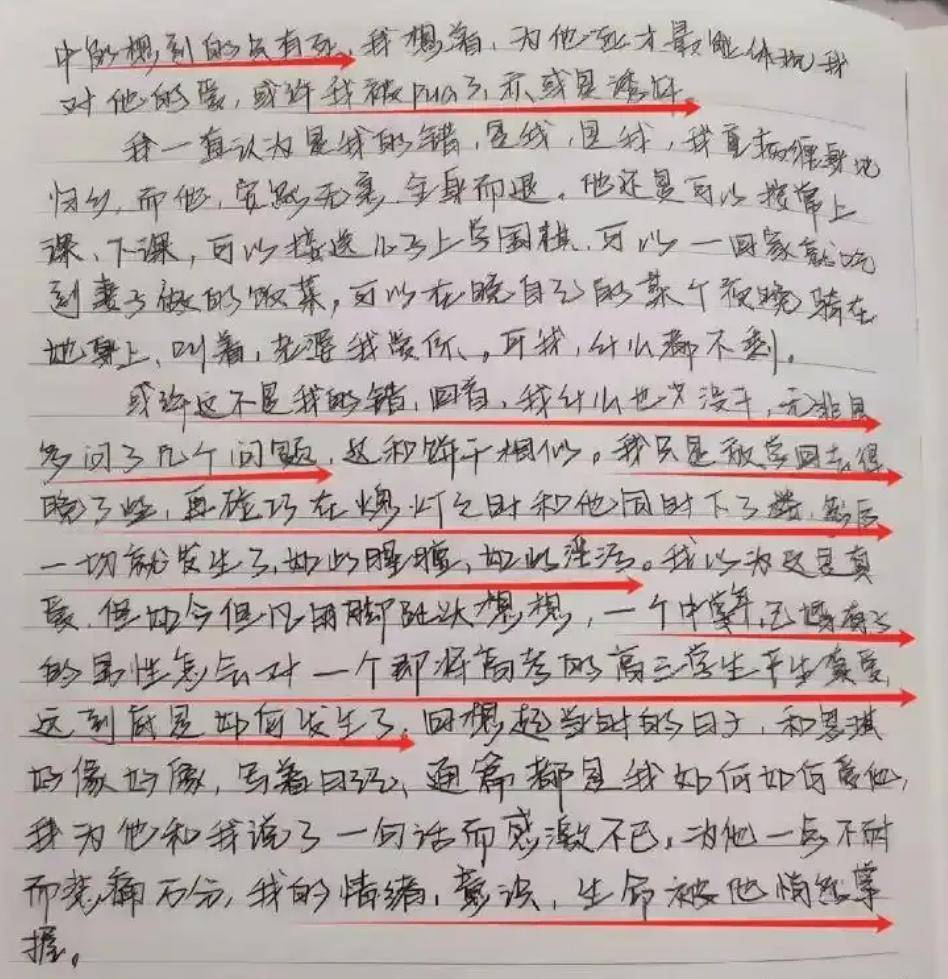 中的想到的只有死,我想着,为他死才最能体现我
对他的爱,或许我被pua了,亦或是诱奸。
我一直认为是我的错,是我,是我,我重病缠身地
归乡,而他,安然无恙,全身而退。他还是可以按常上
课、下课,可以接送儿子上学围棋,可以一回家就吃
到妻子做的饭菜,可以在晚自己的某个夜晚骑在
她身上,叫着,老婆我爱你、。可我,什么都不剩。
或许这不是我的错,回首,我什么也没干,无非是
多问了几个问题,这和饼干相似。我只是放学回去得
晚了些,再碰巧在熄灯之时和他同时下了楼,然后
一切就发生了,如此腥膻,如此污浊。我以为这是真
爱,但如今但凡用脚趾头想想,一个中年,已婚有子
的男性怎会对一个即将高考的高三学生产生真爱,
这到底是如何发生了。回想起当时的日子,和思琪
好像好像,写着日记,通篇都是我如何如何爱他,
我为他和我说了一句话而感激不已,为他一点不耐
而悲痛万分,我的情绪,意识,生命被他悄然掌
握。